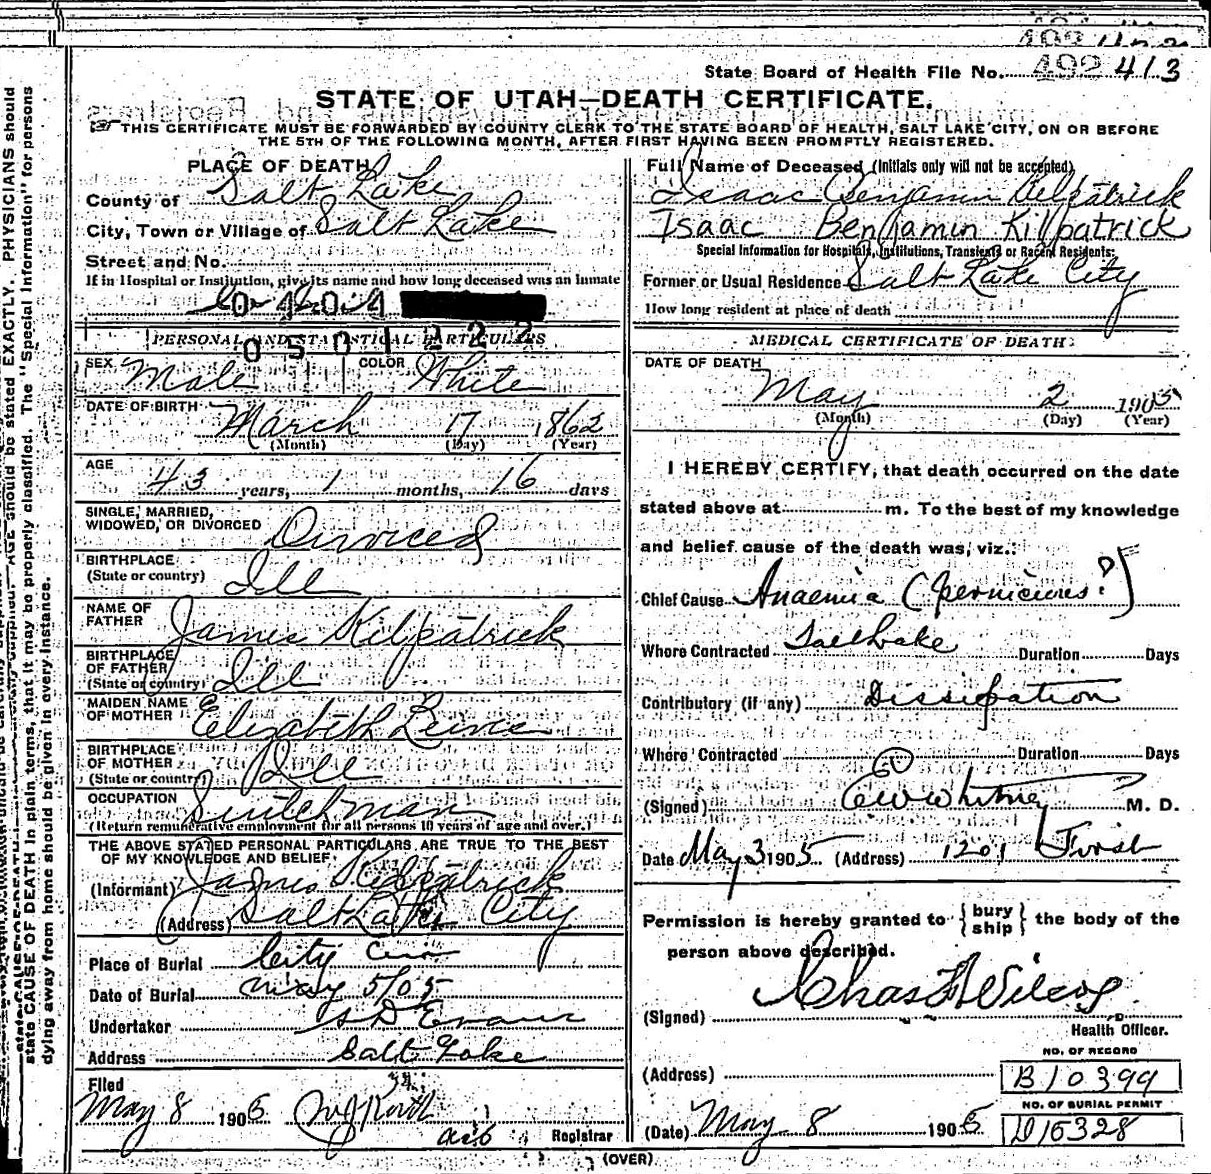 State Board of Health File No. 492 413
STATE OF UTAH—DEATH CERTIFICATE.
THIS CERTIFICATE MUST BE FORWARDED BY COUNTY CLERK TO THE STATE BOARD OF HEALTH, SALT LAKE CITY, ON OR BEFORE
THE 5TH OF THE FOLLOWING MONTH, AFTER FIRST HAVING BEEN PROMPTLY REGISTERED.
PLACE OF DEATH
County of Salt Lake
City, Town or Village of Salt Lake
Street and No.
If in Hospital or Institution, give its name and how long deceased was an inmate
0 4 0 4
0 5 0 1 2 2 2
PERSONAL AND STATISTICAL PARTICULARS
SEX Male COLOR White
DATE OF BIRTH March 17 1862
(Month) (Day) (Year)
AGE 43 years, 1 months, 16 days
SINGLE, MARRIED,
WIDOWED, OR DIVORCED Divorced
BIRTHPLACE
(State or country) Ill
NAME OF
FATHER James Kilpatrick
BIRTHPLACE
OF FATHER
(State or country) Ill
MAIDEN NAME
OF MOTHER Elizabeth
BIRTHPLACE
OF MOTHER
(State or country) Ill
OCCUPATION Switchman
(Return remunerative employment for all persons 10 years of age and over.)
THE ABOVE STATED PERSONAL PARTICULARS ARE TRUE TO THE BEST
OF MY KNOWLEDGE AND BELIEF
(Informant) James Kilpatrick
(Address) Salt Lake City
Place of Burial City Cem
Date of Burial May 5/05
Undertaker S D Evans
Address Salt Lake
Filed
May 8 1905
Registrar
Full Name of Deceased (Initials only will not be accepted)
Isaac Benjamin Kilpatrick
Isaac Benjamin Kilpatrick
Special Information for Hospitals, Institutions, Transients or Recent Residents:
Former or Usual Residence Salt Lake City
How long resident at place of death
MEDICAL CERTIFICATE OF DEATH
DATE OF DEATH
May 2 1905
(Month) (Day) (Year)
I HEREBY CERTIFY, that death occurred on the date
stated above at m. To the best of my knowledge
and belief cause of the death was, viz.:
Chief Cause Anaemia (pernicious?)
Where Contracted Salt Lake Duration Days
Contributory (if any) Dissipation
Where Contracted Duration Days
60
(Signed) Whitney M. D.
Date May 3 1905 (Address) 1201 First
Permission is hereby granted to { bury ship } the body of the
person above described.
(Signed) Chas F Wilcox
Health Officer.
NO. OF RECORD
(Address) B10399
NO. OF BURIAL PERMIT
(Date) May 8 1905 D15328
(OVER)
state CAUSE OF DEATH in plain terms, that it may be properly classified. The "Special Information" for persons
dying away from home should be given in every instance.